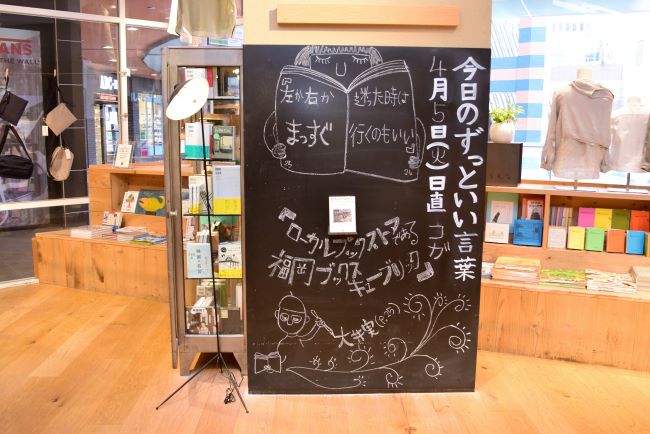 今日のずっといい言葉
4月5日(火)日直 コガ
左か右か
迷った時は
まっすぐ
行くのもいい
『ローカルブックストアである
福岡ブックス
キューブリック』
大井実(P.25)
24
VANS